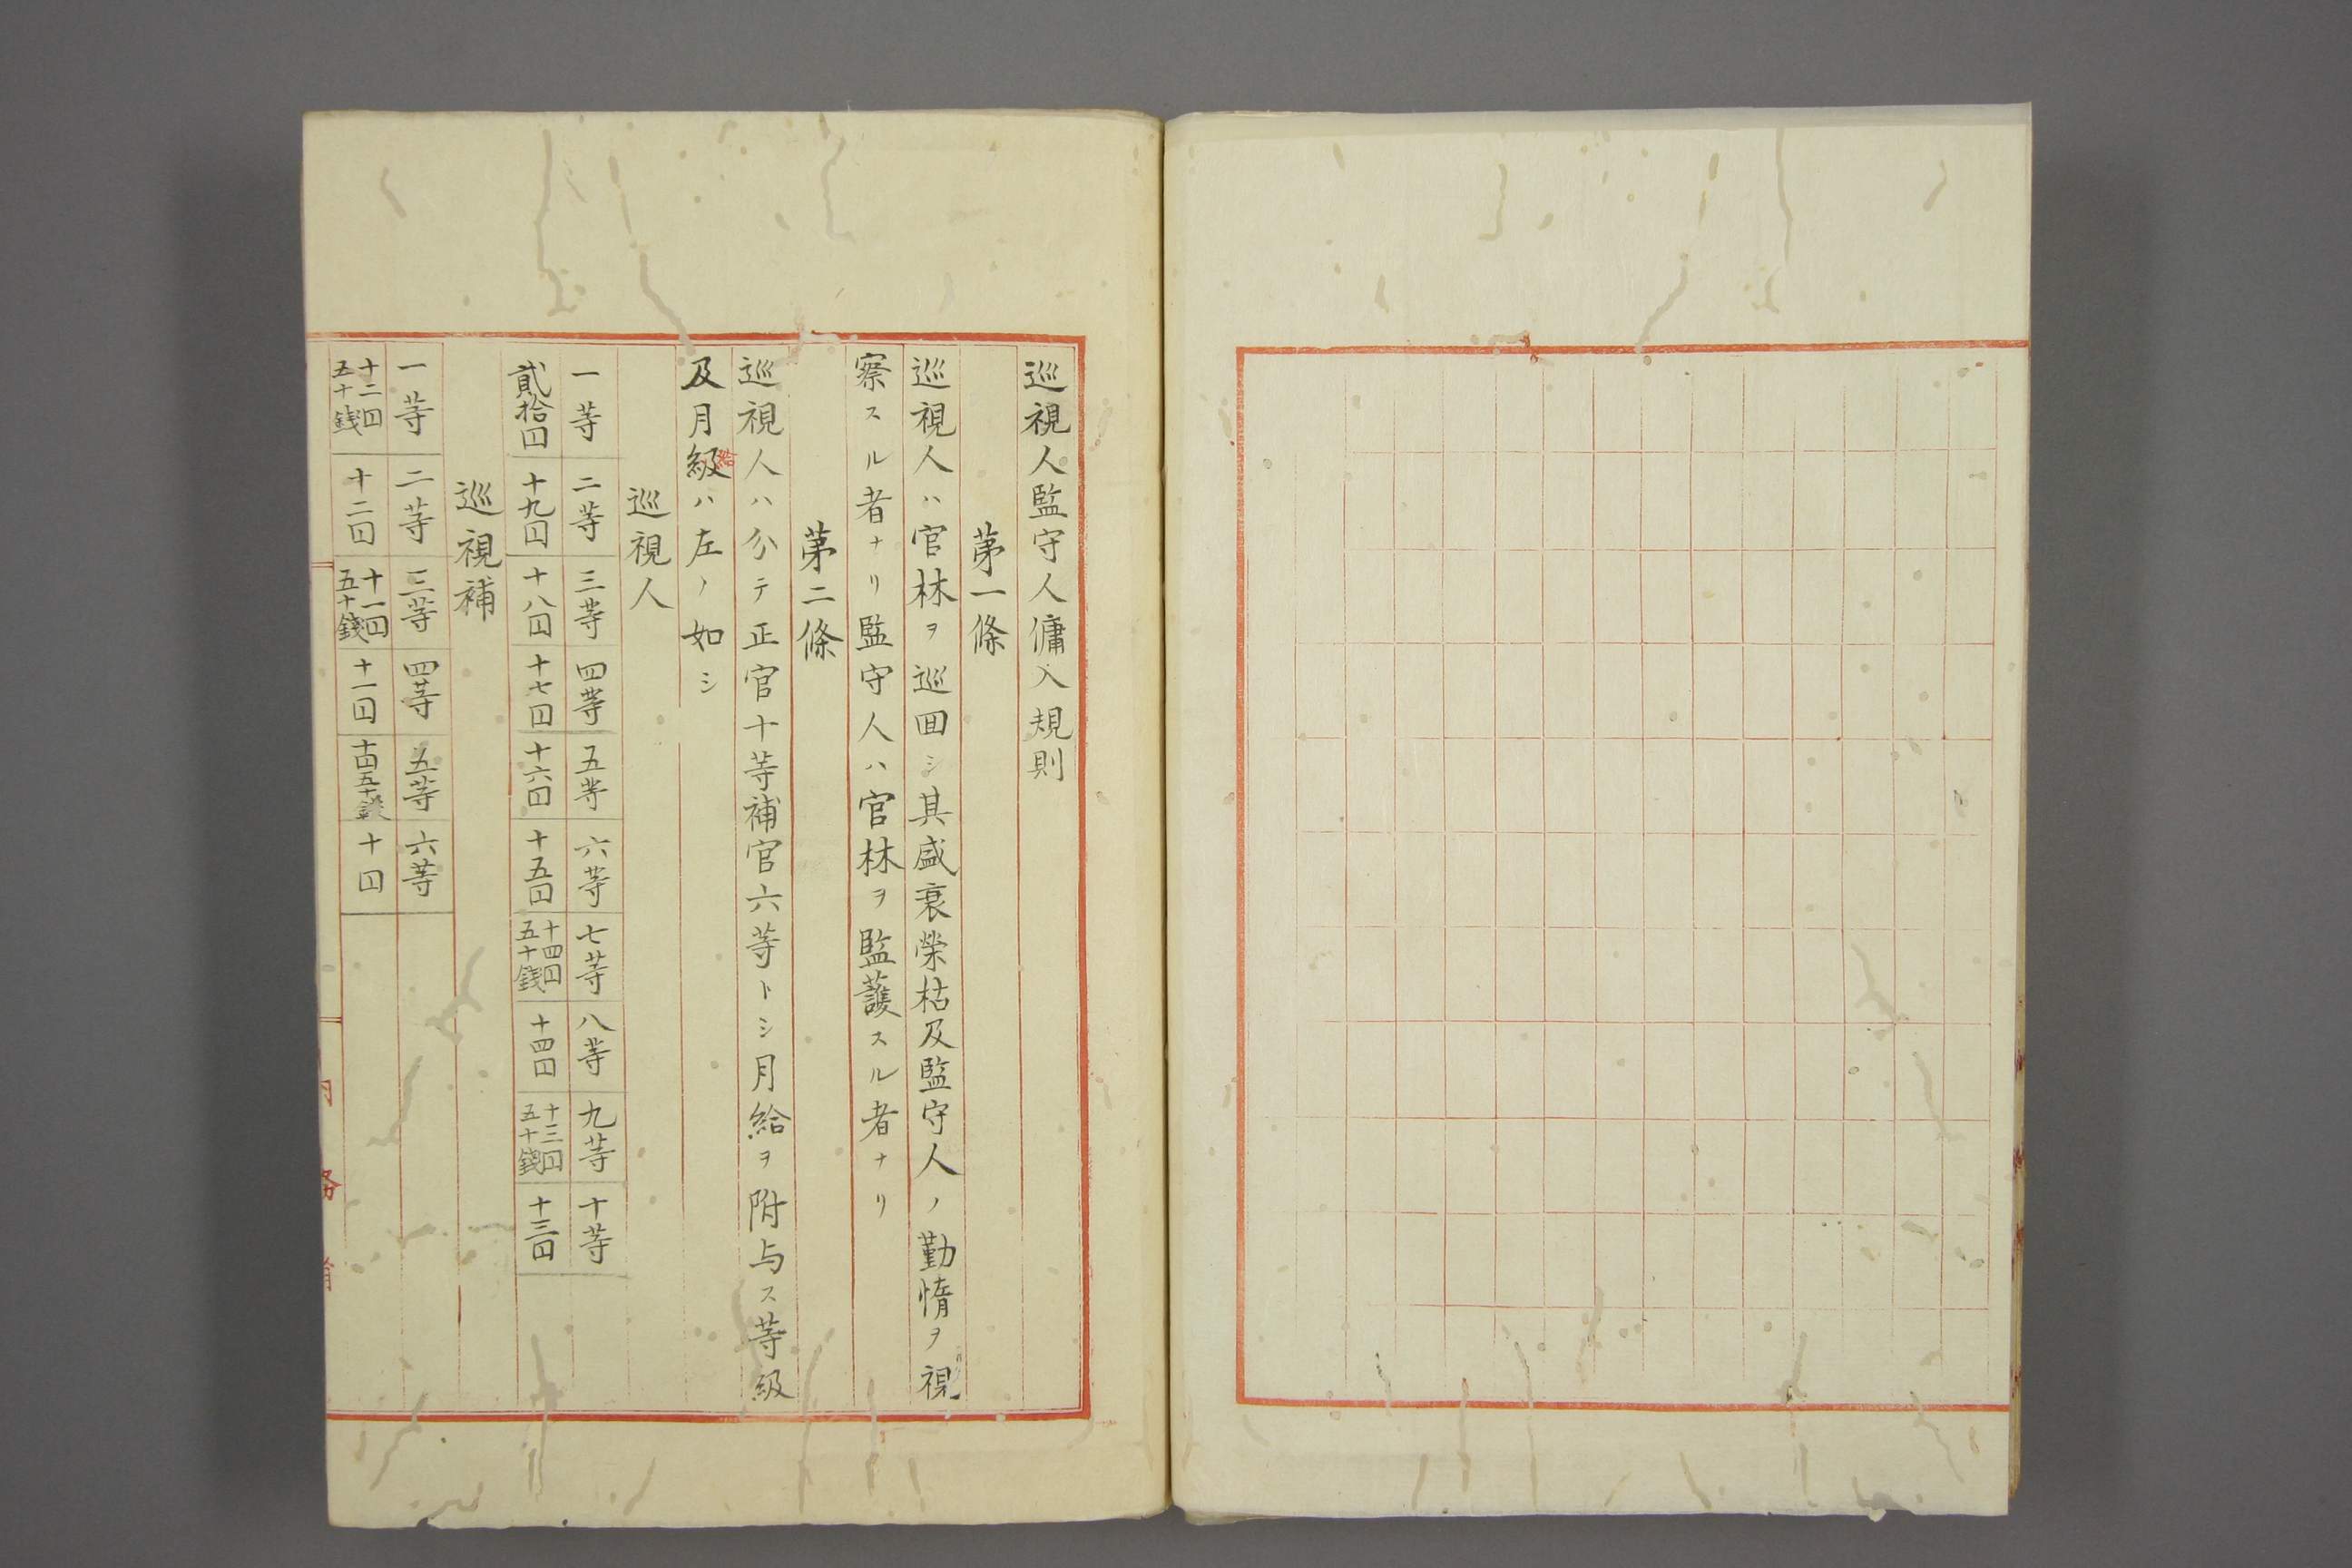 巡視人監守人傭入規則
第一條
巡視人ハ官林ヲ巡囬シ其盛衰榮枯及監守人ノ勤惰ヲ視
察スル者ナリ監守人ハ官林ヲ監護スル者ナリ
第二條
巡視人ハ分テ正官十等補官六等トシ月給ヲ附与ス等級
及月級ハ左ノ如シ
給
巡視人
一等 二等 三等 四等 五等 六等 七等 八等 九等 十等
貳拾円 十九円 十八円 十七円 十六円 十五円 十四円五十錢 十四円 十三円五十錢 十三円
巡視補
一等 二等 三等 四等 五等 六等
十二円五十錢 十二円 十一円五十錢 十一円 十円五十錢 十円
内務省